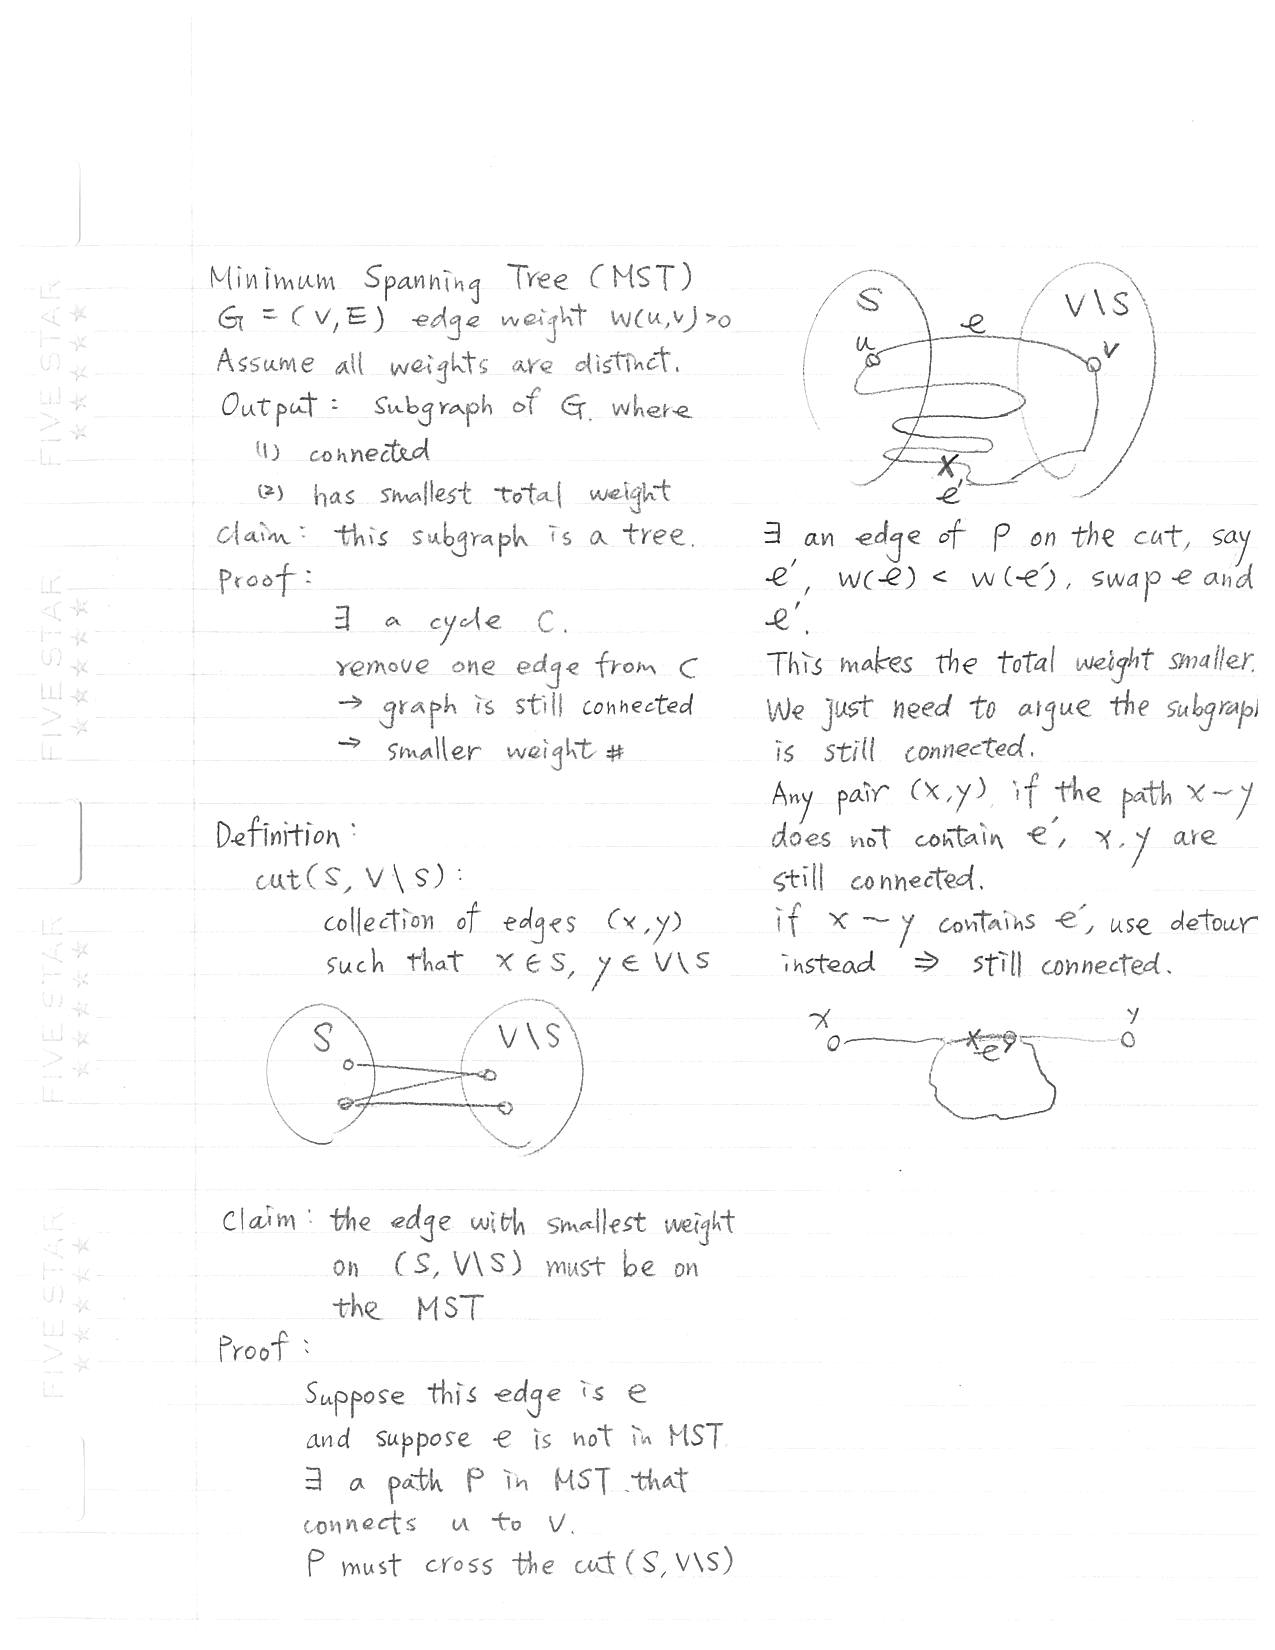 Minimum Spanning Tree (MST)
G = (V, E) edge weight w(u,v)>0
Assume all weights are distinct.
Output: Subgraph of G. where
(1) connected
(2) has smallest total weight
Claim: this subgraph is a tree.
Proof:
∃ a cycle C.
remove one edge from C
→ graph is still connected
→ smaller weight #
Definition:
cut(S, V\S):
collection of edges (x,y)
such that x ∈ S, y ∈ V\S
S V\S
Claim: the edge with smallest weight
on (S, V\S) must be on
the MST
Proof:
Suppose this edge is e
and suppose e is not in MST
∃ a path P in MST that
connects u to v.
P must cross the cut(S, V\S)
S V\S
e
u v
e'
∃ an edge of P on the cut, say
e', w(e) < w(e'), swap e and
e'.
This makes the total weight smaller.
We just need to argue the subgraph
is still connected.
Any pair (x,y) if the path x~y
does not contain e', x, y are
still connected.
if x ~ y contains e', use detour
instead ⇒ still connected.
x y
e'
FIVE STAR
FIVE STAR
FIVE STAR
FIVE STAR